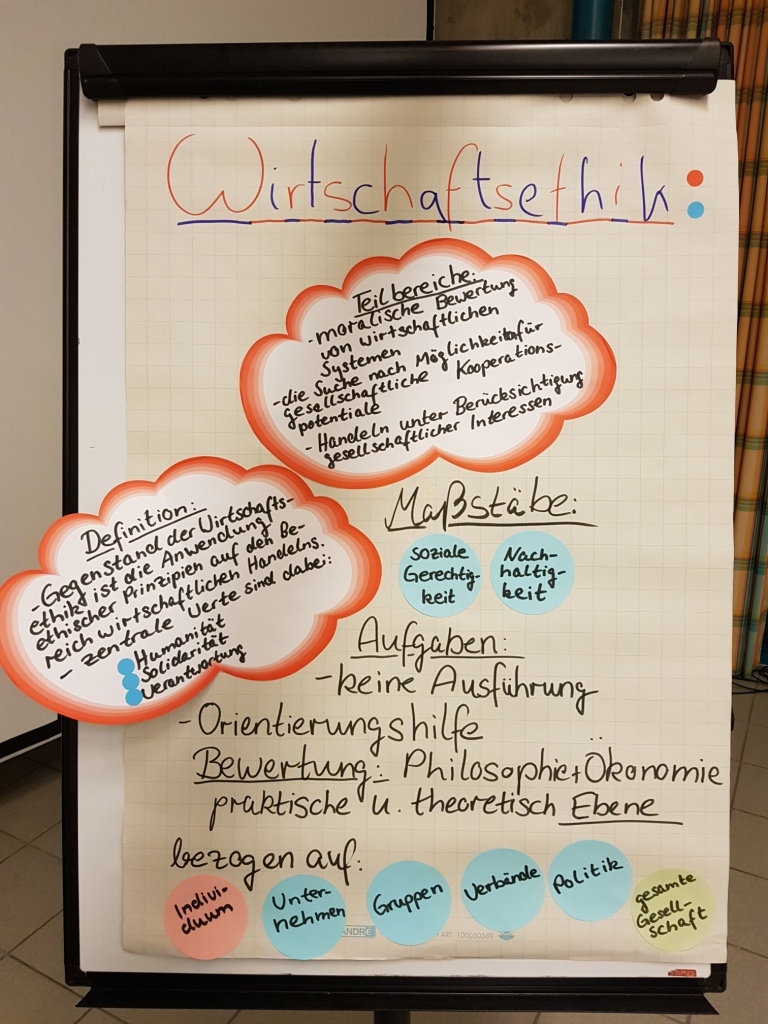 Wirtschaftsethik:
Teilbereiche:
- moralische Bewertung
von wirtschaftlichen
Systemen
- die Suche nach Möglichkeiten für
gesellschaftliche Kooperations-
potentiale
- Handeln unter Berücksichtigung
gesellschaftlicher Interessen
Definition:
- Gegenstand der Wirtschafts-
ethik ist die Anwendung
ethischer Prinzipien auf den Be-
reich wirtschaftlichen Handelns.
- zentrale Werte sind dabei:
Humanität
Solidarität
Verantwortung
Maßstäbe:
soziale
Gerechtig-
keit
Nach-
haltig-
keit
Aufgaben:
- keine Ausführung
- Orientierungshilfe
Bewertung: Philosophie + Ökonomie
praktische u. theoretisch Ebene
bezogen auf:
Indivi-
duum
Unter-
nehmen
Gruppen
Verbände
Politik
gesamte
Gesell-
schaft
ART. 100050589